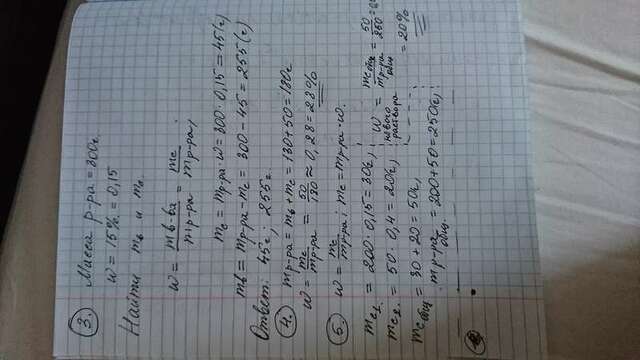 3. Масса р-ра = 300г.
w = 15% = 0,15
Найти mв и mс.
w = mв-ва/mр-ра = mс/mр-ра;
mс = mр-ра · w = 300 · 0,15 = 45(г)
mв = mр-ра - mс = 300 - 45 = 255(г)
Ответ: 45г; 255г.
4. mр-ра = mв + mс = 130 + 50 = 180г
w = mс/mр-ра = 50/180 ≈ 0,28 = 28%
5. w = mс/mр-ра; mс = mр-ра · w.
mс1. = 200 · 0,15 = 30г,
mс2. = 50 · 0,4 = 20г,
mс общ = 30 + 20 = 50г,
mр-ра общ = 200 + 50 = 250г,
w нового раствора = mс общ/mр-ра общ = 50/250 =
= 20%